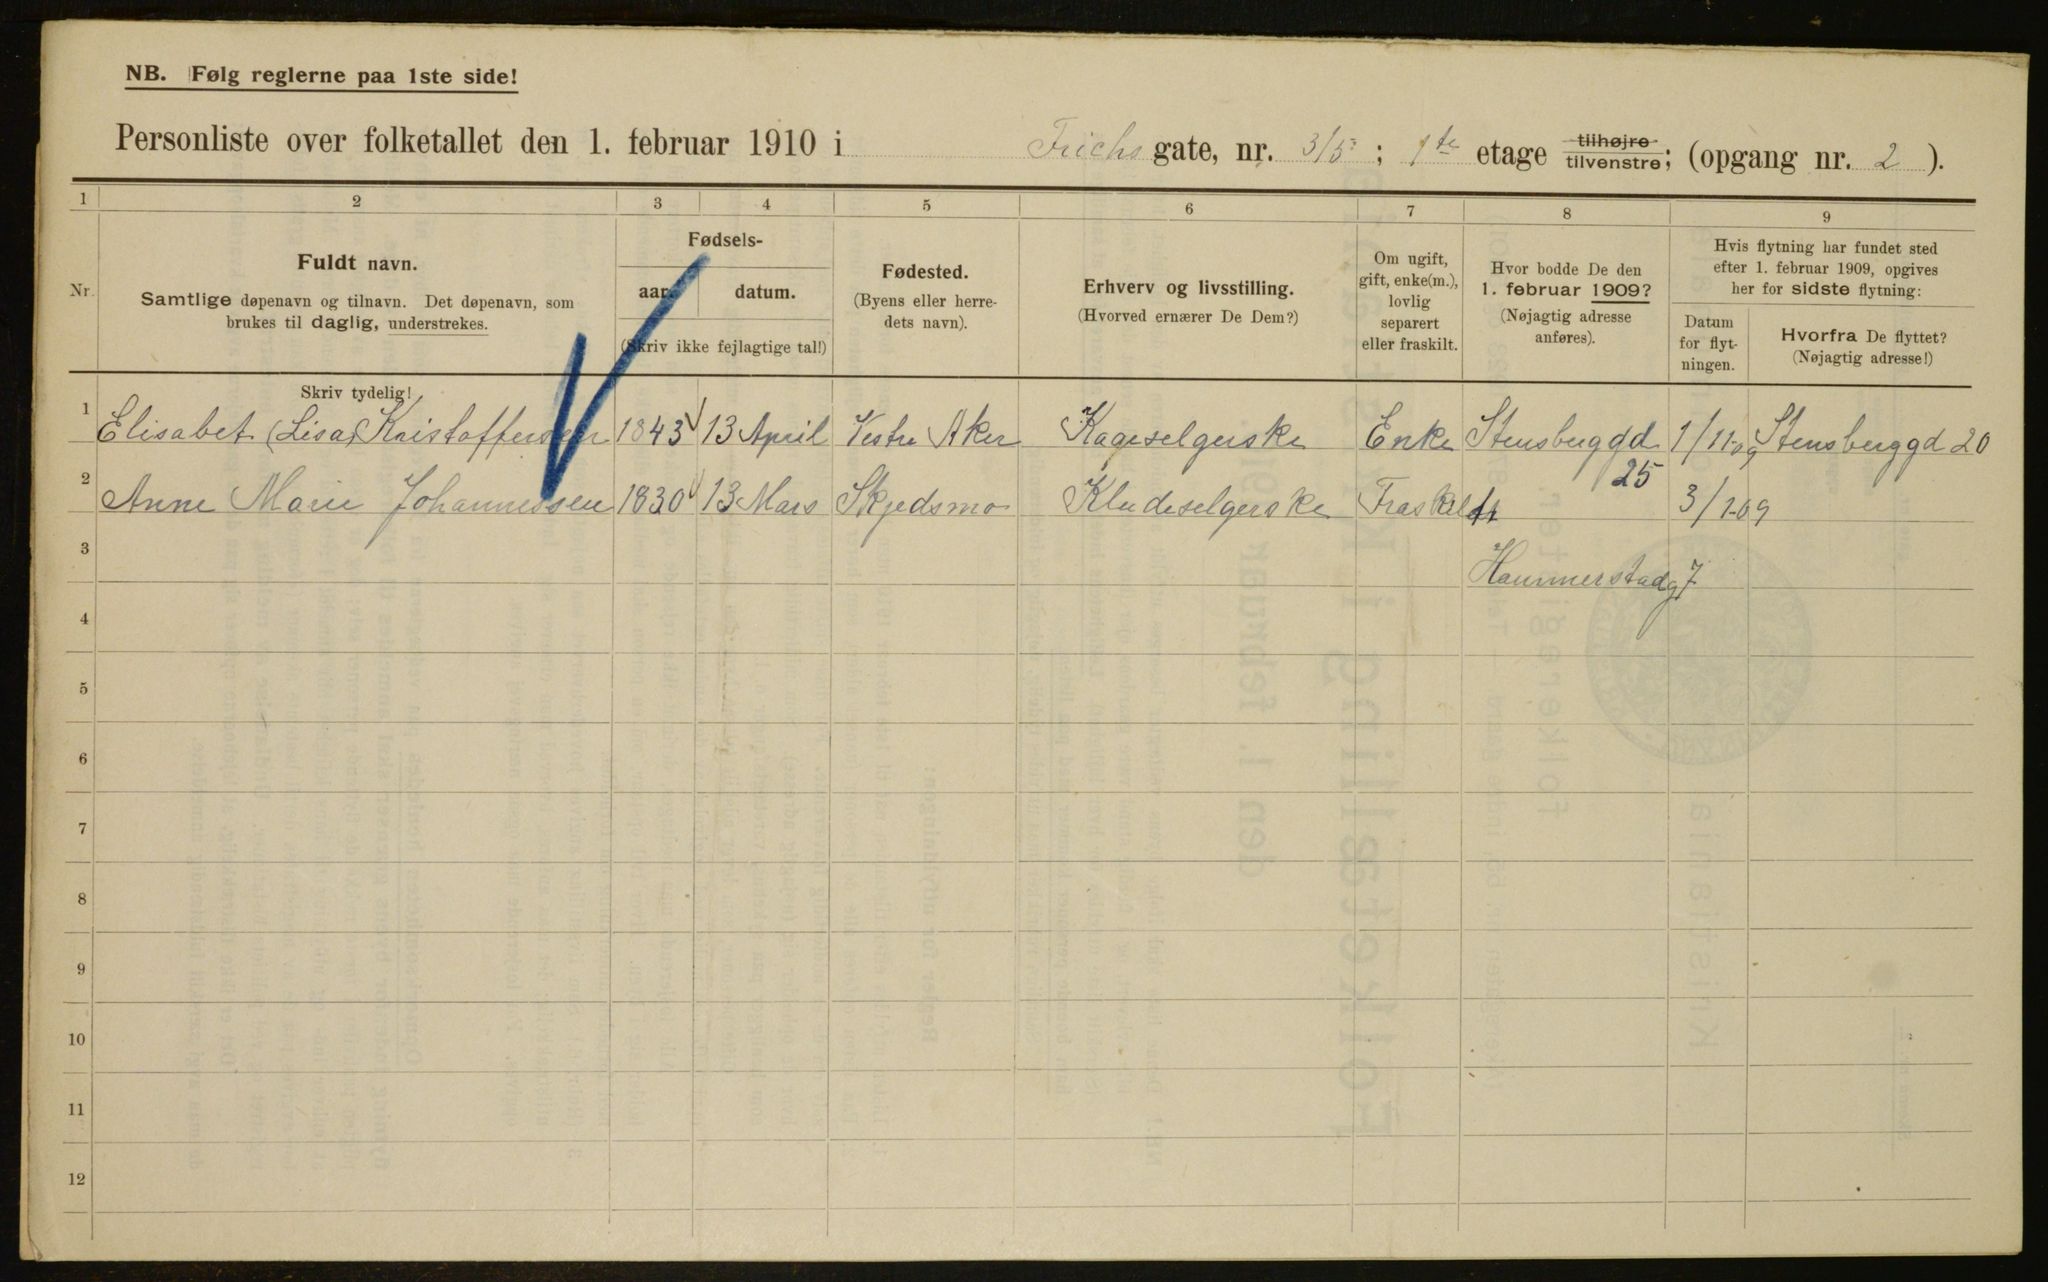 NB. Følg reglerne paa 1ste side!
Personliste over folketallet den 1. februar 1910 i Frichs gate, nr. 3/5 ; 1ste etage tilhøjre tilvenstre; (opgang nr. 2 ).
1 2 3 4 5 6 7 8 9
Nr.
Fuldt navn.
Samtlige døpenavn og tilnavn. Det døpenavn, som
brukes til daglig, understrekes.
Skriv tydelig!
Fødsels-
aar. datum.
(Skriv ikke fejlagtige tal!)
Fødested.
(Byens eller herre-
dets navn).
Erhverv og livsstilling.
(Hvorved ernærer De Dem?)
Om ugift,
gift, enke(m.),
lovlig
separert
eller fraskilt.
Hvor bodde De den
1. februar 1909?
(Nøjagtig adresse
anføres).
Hvis flytning har fundet sted
efter 1. februar 1909, opgives
her for sidste flytning:
Datum
for flyt-
ningen.
Hvorfra De flyttet?
(Nøjagtig adresse!)
1 Elisabet (Lisa) Kristoffersen 1843 13 April Vestre Aker Kageselgerske Enke Stensberggd 25 1/11-09 Stensberggd 20
2 Anne Marie Johannessen 1830 13 Mars Skjedsmo Kludeselgerske Fraskilt 3/1-09
3 Hammerstadg 7
4
5
6
7
8
9
10
11
12